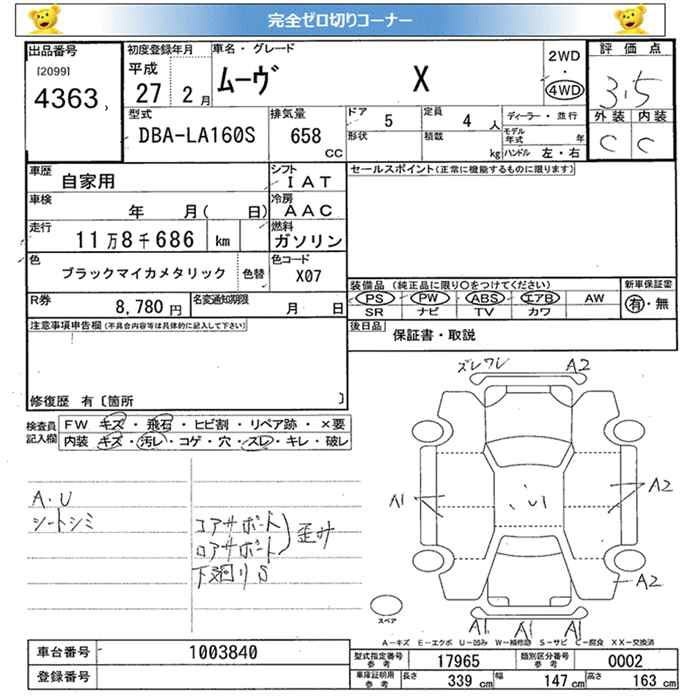 完全ゼロ切りコーナー
出品番号
[2099]
4363
初度登録年月
平成
27 2月
車名・グレード
ムーヴ X
2WD
・
4WD
評価点
3.5
外装 内装
C C
型式
DBA-LA160S
排気量
658
CC
ドア
5
定員
4 人
形状
積載
kg
ディーラー・並行
モデル年式 年
ハンドル 左・右
車歴
自家用
シフト
IAT
車検
年 月( 日)
冷房
AAC
走行
11万8千686 km
燃料
ガソリン
色
ブラックマイカメタリック
色替
色コード
X07
R券
8,780円
名変通知期限
月 日
セールスポイント(正常に機能するものに限ります)
装備品(純正品に限り○をつけてください)
PS PW ABS エアB AW
SR ナビ TV カワ
新車保証書
有・無
後日品
保証書・取説
注意事項申告欄(不具合内容等は具体的に記入して下さい)
修復歴 有〔箇所 〕
検査員記入欄
FW キズ・飛石・ヒビ割・リペア跡・×要
内装 キズ・汚レ・コゲ・穴・スレ・キレ・破レ
A.U
シートシミ
コアサポート
ロアサポート
歪サ
下廻りS
ズレワレ A2
A1
A2
A2
A1 A1 A1
スペア
A-キズ E-エクボ U-凹み W-補修跡 S-サビ C-腐食 XX-交換済
車台番号 1003840
登録番号
型式指定番号参考 17965
類別区分番号参考 0002
車庫証明用参考
長さ 339 cm 幅 147 cm 高さ 163 cm